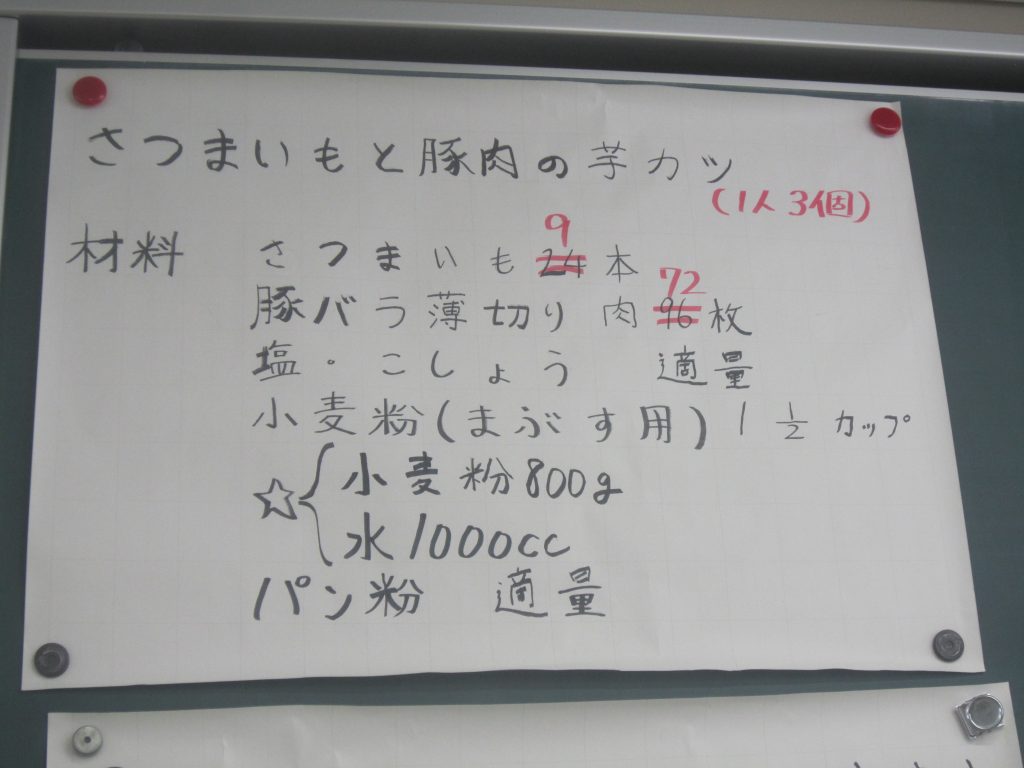 さつまいもと豚肉の芋カツ
(1人3個)
材料 さつまいも 24 9 本
豚バラ薄切り肉 96 72 枚
塩・こしょう 適量
小麦粉(まぶす用) 1 1/2 カップ
☆{小麦粉800g
水1000cc
パン粉 適量